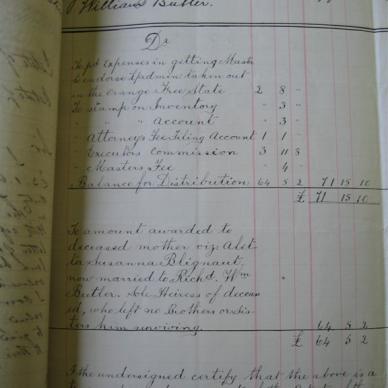 William Butler.
Dr
To pd Expenses in getting Mastr
to endorse Ladmin taken out
in the Orange Free State 2 8 -
To stamp on Inventory - 3 -
" " " Account - 3 -
" Attorneys Fee Filing Account 1 1 -
" Executors Commission 3 11 8
" Masters Fee - 4 -
" Balance for Distribution 64 5 2 71 15 10
£ 71 15 10
To amount awarded to
deceased mother viz: Alet-
ta Susanna Blignaut,
now married to Richd. Wm
Butler. Sole Heiress of deceas-
ed, who left no brothers or sis-
ters him surviving. 64 5 2
£ 64 5 2
I the undersigned certify that the above is a